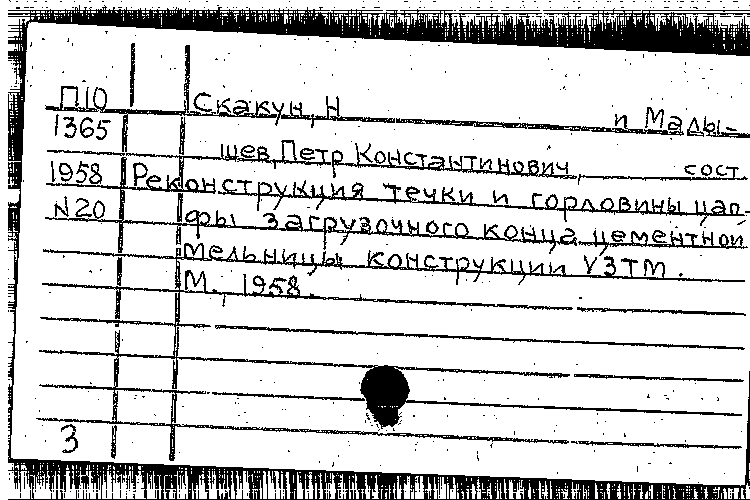 П10 Скакун, Н и Малы-
1365 шев, Петр Константинович, сост.
1958 Реконструкция течки и горловины цап-
N20 фы загрузочного конца цементной
мельницы конструкции УЗТМ.
М., 1958.
3